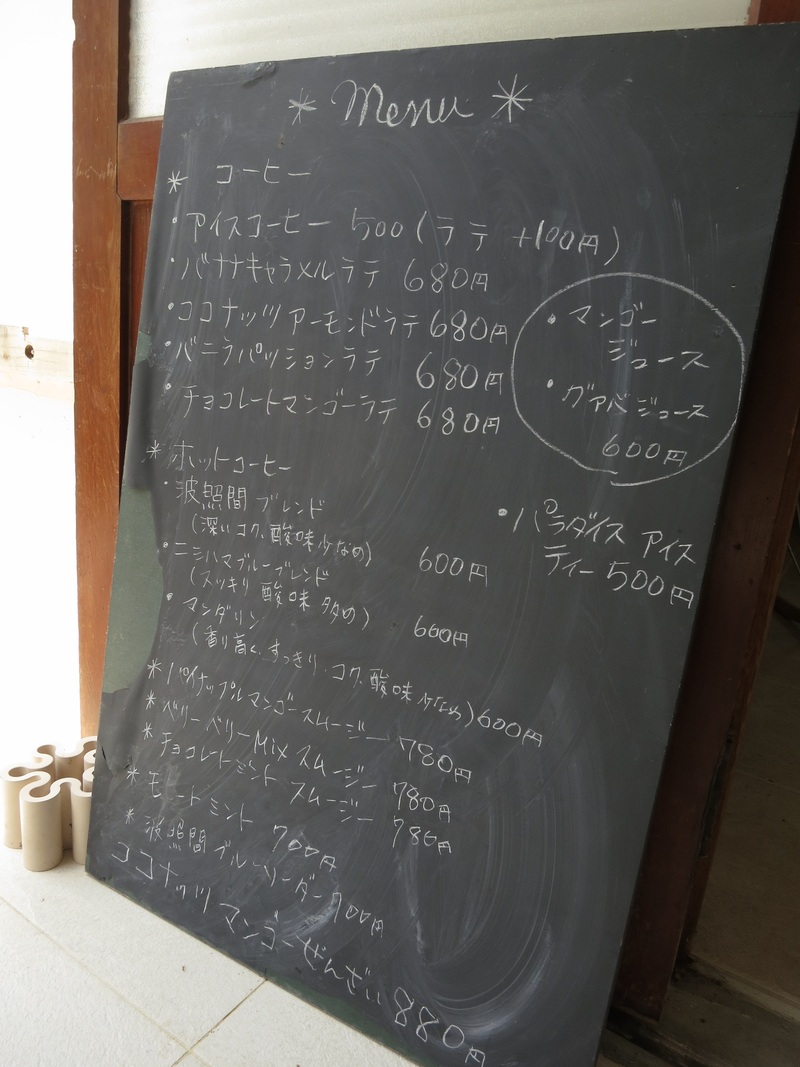 * Menu *
* コーヒー
・アイスコーヒー 500 (ラテ +100円)
・バナナキャラメルラテ 680円
・ココナッツアーモンドラテ 680円
・バニラパッションラテ 680円
・チョコレートマンゴーラテ 680円
・マンゴー
ジュース
・グァバジュース
600円
* ホットコーヒー
・波照間ブレンド
(深いコク、酸味少なめ) 600円
・ニシハマブルーブレンド
(スッキリ 酸味 多め) 600円
・マンダリン
(香り高く、すっきり・コク、酸味少なめ) 600円
・パラダイス アイス
ティー 500円
* パイナップルマンゴースムージー 780円
* ベリーベリーMixスムージー 780円
* チョコレートミント スムージー 780円
* モヒートミント 700円
* 波照間ブルーソーダー 700円
ココナッツ マンゴーぜんざい 880円